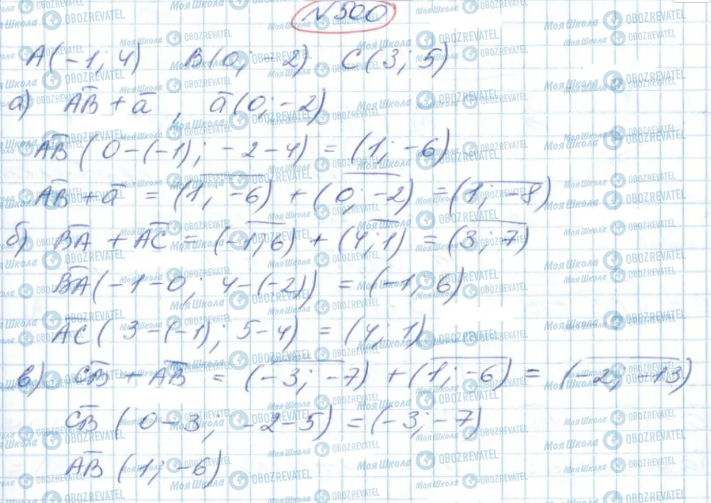 №500
A(-1; 4) B(0; -2) C(3; 5)
а) AB + a , a(0; -2)
AB (0-(-1); -2-4) = (1; -6)
AB + a = (1; -6) + (0; -2) = (1; -8)
б) BA + AC = (-1; 6) + (4; 1) = (3; 7)
BA (-1-0; 4-(-2)) = (-1; 6)
AC (3-(-1); 5-4) = (4; 1)
в) CB + AB = (-3; -7) + (1; -6) = (-2; -13)
CB (0-3; -2-5) = (-3; -7)
AB (1; -6)